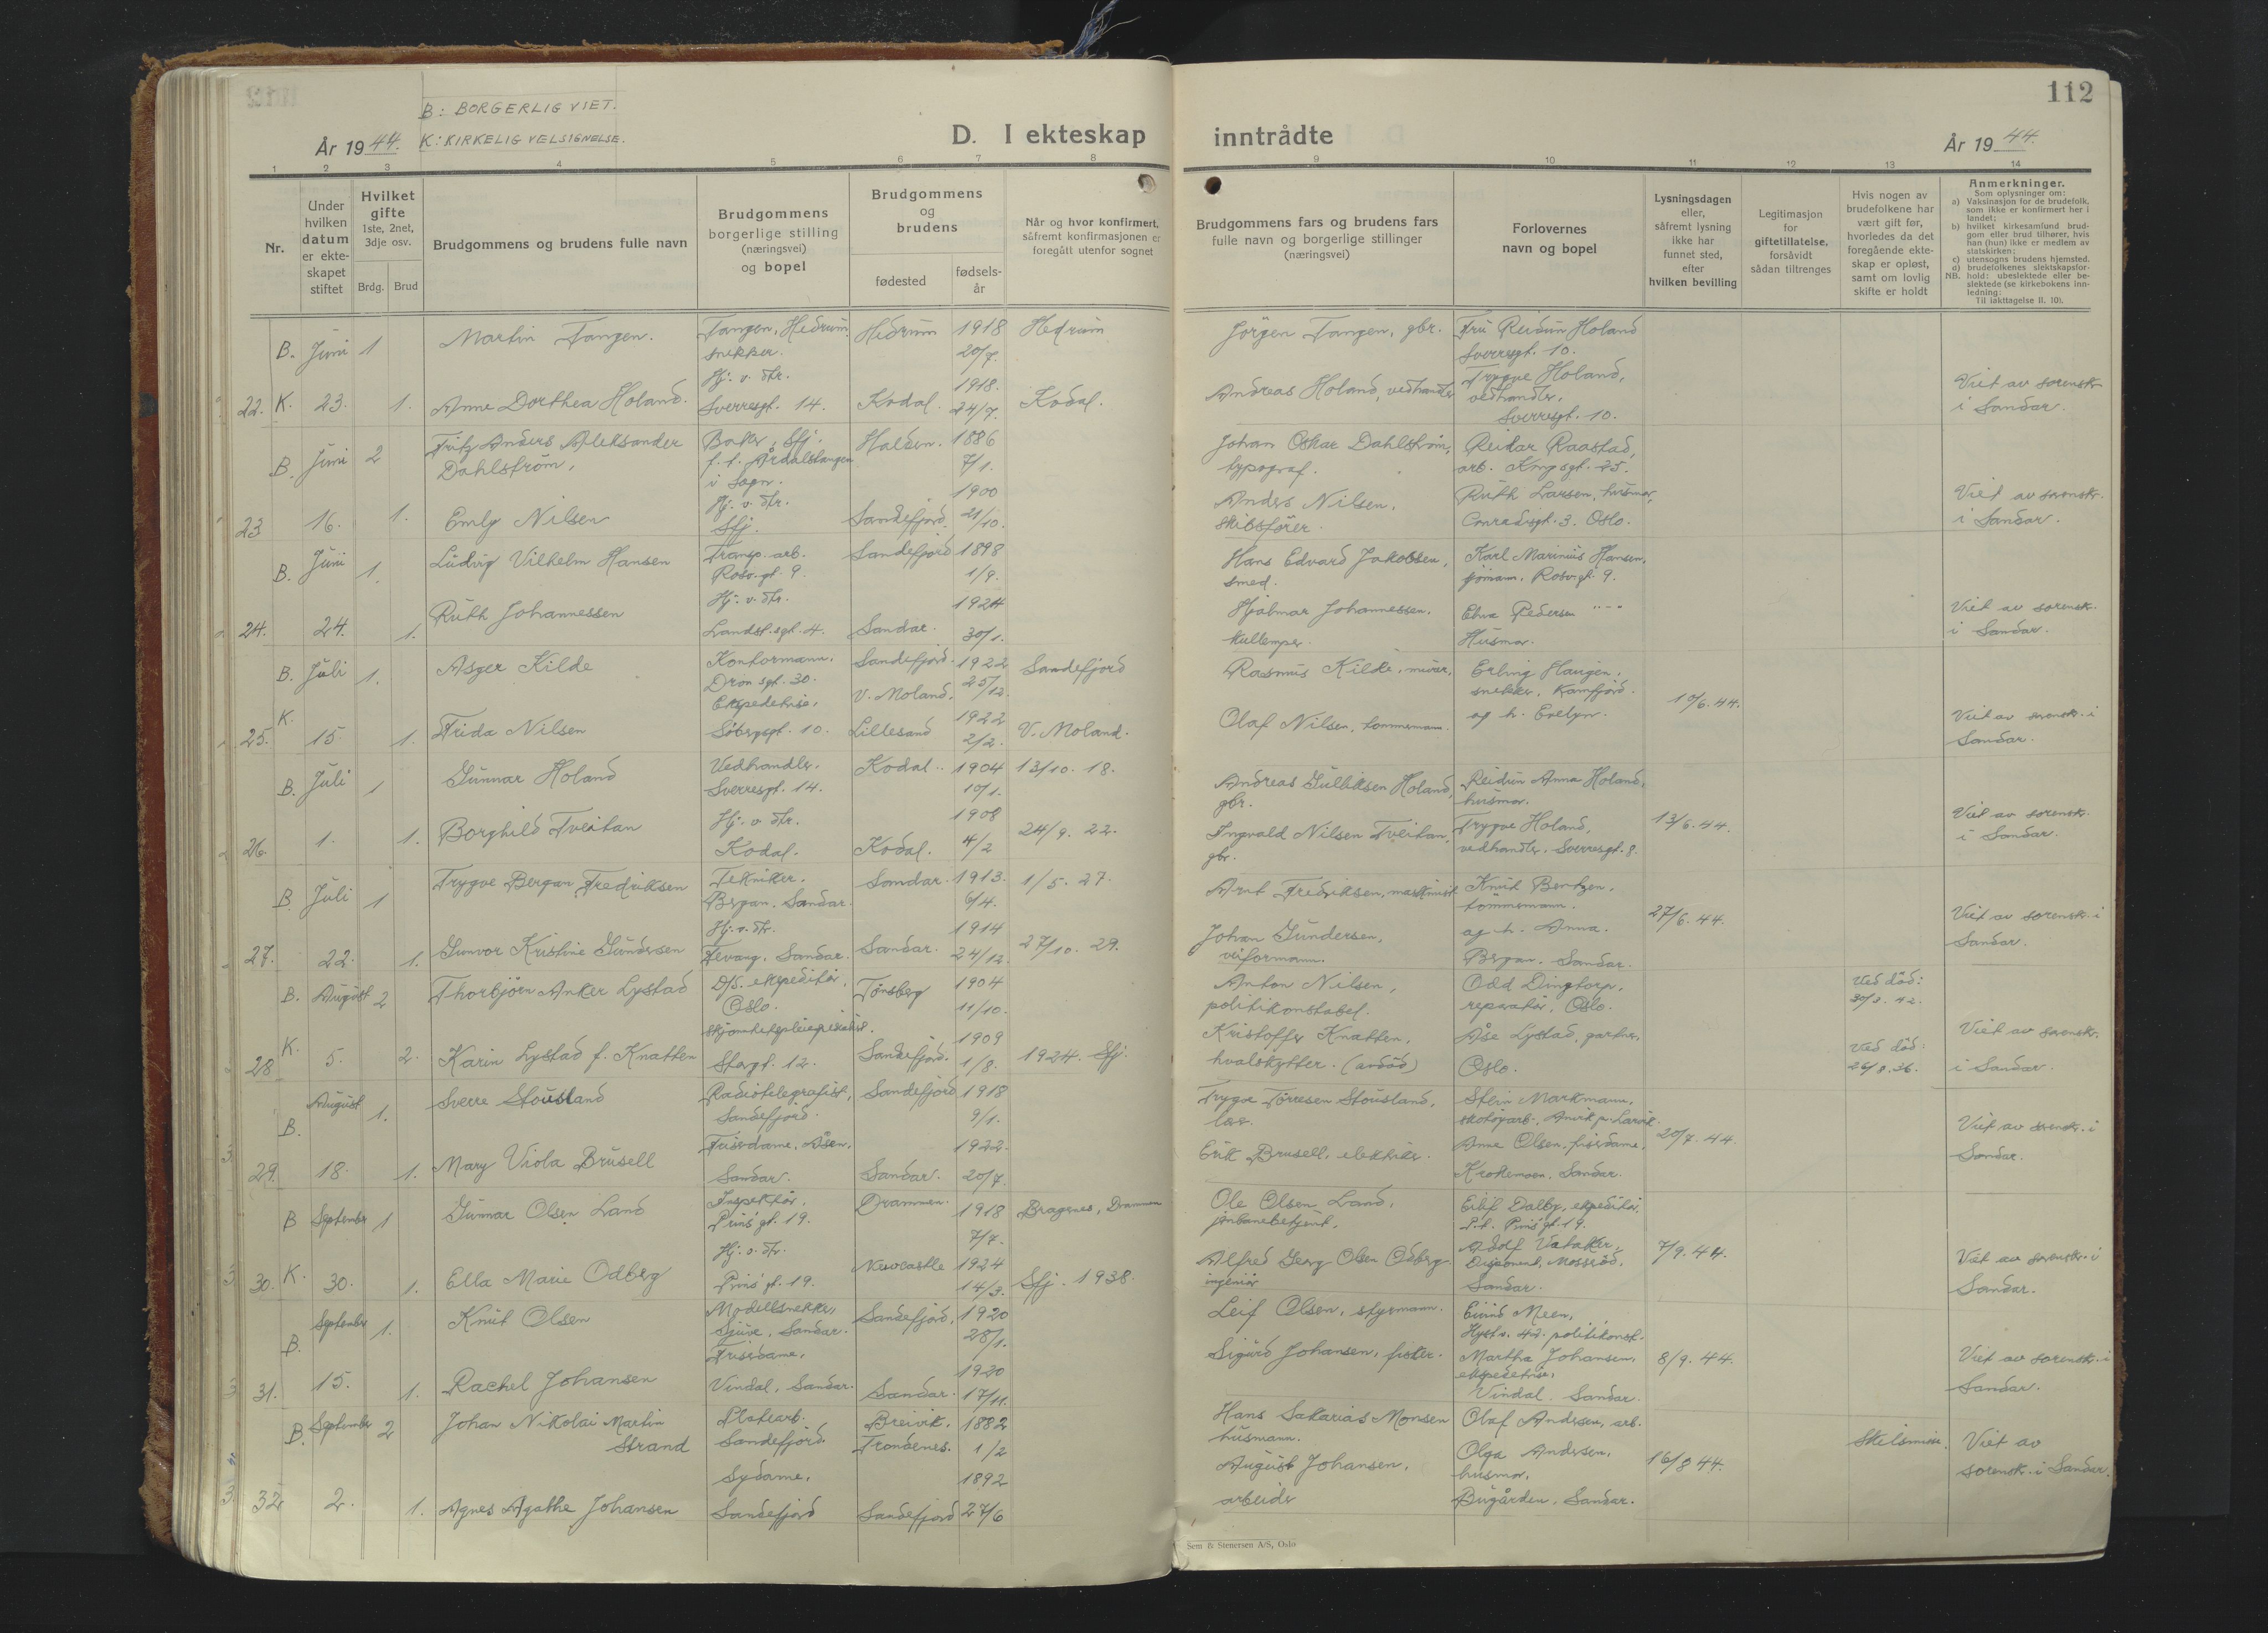 112
B: BORGERLIG VIET.
K: KIRKELIG VELSIGNELSE.
År 1944.
D. I ekteskap inntrådte
År 1944.
1 2 3 4 5 6 7 8 9 10 11 12 13 14
Nr.
Under hvilken datum er ekte-skapet stiftet
Hvilket gifte 1ste, 2net, 3dje osv.
Brdg. Brud
Brudgommens og brudens fulle navn
Brudgommens borgerlige stilling (næringsvei) og bopel
Brudgommens og brudens
fødested
fødsels-år
Når og hvor konfirmert, såfremt konfirmasjonen er foregått utenfor sognet
Brudgommens fars og brudens fars fulle navn og borgerlige stillinger (næringsvei)
Forlovernes navn og bopel
Lysningsdagen eller, såfremt lysning ikke har funnet sted, efter hvilken bevilling
Legitimasjon for giftetillatelse, forsåvidt sådan tiltrenges
Hvis nogen av brudefolkene har vært gift før, hvorledes da det foregående ekte-skap er opløst, samt om lovlig skifte er holdt
Anmerkninger.
Som oplysninger om:
a) Vaksinasjon for de brudefolk, som ikke er konfirmert her i landet;
b) hvilket kirkesamfund brud-gom eller brud tilhører, hvis han (hun) ikke er medlem av statskirken;
c) utensogns brudens hjemsted.
d) brudefolkenes slektskapsfor-hold: ubeslektede eller be-slektede (se kirkebokens inn-ledning:
NB.
Til iakttagelse II. 10).
B. Juni 1 Martin Tangen. Tangen, Hedrum. snekker. Hedrum 1918 20/7. Hedrum Jörgen Tangen, gbr. Fru Reidun Holand Sverresgt. 10.
22. K. 23. 1. Anne Dorthea Holand. Hj. v. dtr. Sverresgt. 14. Kodal. 1918. 24/7. Kodal. Andreas Holand, vedhandler Trygve Holand, vedhandler. Sverresgt. 10. Viet av sorensk. i Sandar.
B. Juni 2 Fritz Anders Aleksander Dahlström, Baker, Sfj. f. t. Årdalstangen i Sogn. Halden. 1886 7/1. Johan Oskar Dahlström, typograf. Reidar Raastad, arb. Kmp sgt. 25.
23 16. 1. Emly Nilsen Hj. v. dtr. Sfj. Sandefjord. 1900 21/10. Anders Nilsen, skibsförer. Ruth Larsen, husmor, Conradisgt. 3. Oslo. Viet av sorensk. i Sandar.
B. Juni 1. Ludvig Vilhelm Hansen Transp. arb. Rosv. gt. 9. Sandefjord 1898 1/9. Hans Edvard Jakobsen, smed. Karl Marinius Hansen, sjömann. Rosv. gt. 9.
24. 24. 1. Ruth Johannessen Hj. v. dtr. Landst. sgt. 4. Sandar. 1924 30/1. Hjalmar Johannessen. kullemper. Elna Pedersen "-" Husmor. Viet av sorensk. i Sandar.
B. Juli 1. Asger Kilde Kontormann. Dron sgt. 30. Sandefjord. 1922 25/12. Sandefjord Rasmus Kilde, murer, Erling Haugen, snekker, Kamfjord.
K. 25. 15. 1. Frida Nilsen Ekspeditrise, Söbergsgt. 10. V. Moland. Lillesand 1922 2/2. V. Moland. Olaf Nilsen, tömmermann. og h. Evelyn. 10/6. 44. Viet av sorensk. i Sandar.
B. Juli 1 Gunnar Holand Vedhandler. Sverresgt. 14. Kodal. 1904 10/1. 13/10. 18. Andreas Gulliksen Holand, gbr. Reidun Anna Holand, husmor.
26. 1. 1. Borghild Tveitan Hj. v. dtr. Kodal. Kodal. 1908 4/2 24/9. 22. Ingvald Nilsen Tveitan, gbr. Trygve Holand, vedhandler. Sverresgt. 8. 13/6. 44. Viet av sorensk. i Sandar.
B. Juli 1 Trygve Bergan Fredriksen Tekniker. Bergan. Sandar. Sandar. 1913. 6/4. 1/5. 27. Arnt Fredriksen, maskinist Knut Bentzen. tömmermann.
27. 22. 1. Gunvor Kristine Gundersen Hj. v. dtr. Fevang. Sandar. Sandar. 1914 24/12. 27/10. 29. Johan Gundersen, veiformann. og h. Anna. Bergan. Sandar. 27/6. 44. Viet av sorensk. i Sandar.
B. August 2 Thorbjörn Anker Lystad D/S. ekspeditör, Oslo. Tönsberg 1904 11/10. Anton Nilsen, politikonstabel. Odd Dingtorp, reparatör, Oslo. Ved död: 30/3. 42.
K. 28 5. 2. Karin Lystad f. Knatten Storgt. 12. Sandefjord. 1909 1/8. 1924. Sfj. Kristoffer Knatten, hvalskytter. (andöd) Åse Lystad, gartner, Oslo. Ved död: 26/8. 36. Viet av sorensk. i Sandar.
B. August 1. Sverre Stousland Radiotelegrafist, Sandefjord. Sandefjord 1918 9/1. Trygve Törresen Stousland, Stein Markmann,
29. 18. 1. Mary Viola Brusell Friserdame, Åsen, Sandar. Sandar. 1922. 20/7. Erik Brusell, elektriker. Anne Olsen, friserdame, Krokemoen. Sandar. 20/7. 44. Viet av sorensk. i Sandar.
B September 1 Gunnar Olsen Land Inspektör, Prins gt. 19. Drammen. 1918 7/7. Bragenes, Drammen Ole Olsen Land, jernbanebetjent, Eilif Dalby, ekspeditör, P.t. Prins gt. 19.
30. K. 30. 1. Ella Marie Odberg Hj. v. dtr. Prins gt. 19. Newcastle 1924 14/3. Sfj. 1938. Alfred Georg Olsen Odberg ingeniör Adolf Vataker, Disponent, Mosseröd, Sandar. 7/9. 44. Viet av sorensk. i Sandar.
B. September 1. Knut Olsen Modellsnekker, Gjuve, Sandar. Sandefjord. 1920 28/1. Leif Olsen, styrmann. Eivind Meen, Hystv. 42. politikonst.
31. 15. 1. Rachel Johansen Friserdame, Vindal, Sandar. Sandar. 1920 17/11. Sigurd Johansen, fisker. Martha Johansen, ekspeditrise, Vindal. Sandar. 8/9. 44. Viet av sorensk. i Sandar.
B. September 2 Johan Nikolai Martin Strand Platearb. Sandefjord. Breivik, Trondenes. 1882 1/2 Hans Sakarias Monsen husmann. Olaf Andersen, arb. Skilsmisse.
32 2. 1. Agnes Agathe Johansen Sydame, Sandefjord Sandefjord 1892 27/6 August Johansen, arbeider Olga Andersen, husmor, Bugården, Sandar. 16/8 44. Viet av sorensk. i Sandar.
Sem & Stenersen A/S, Oslo